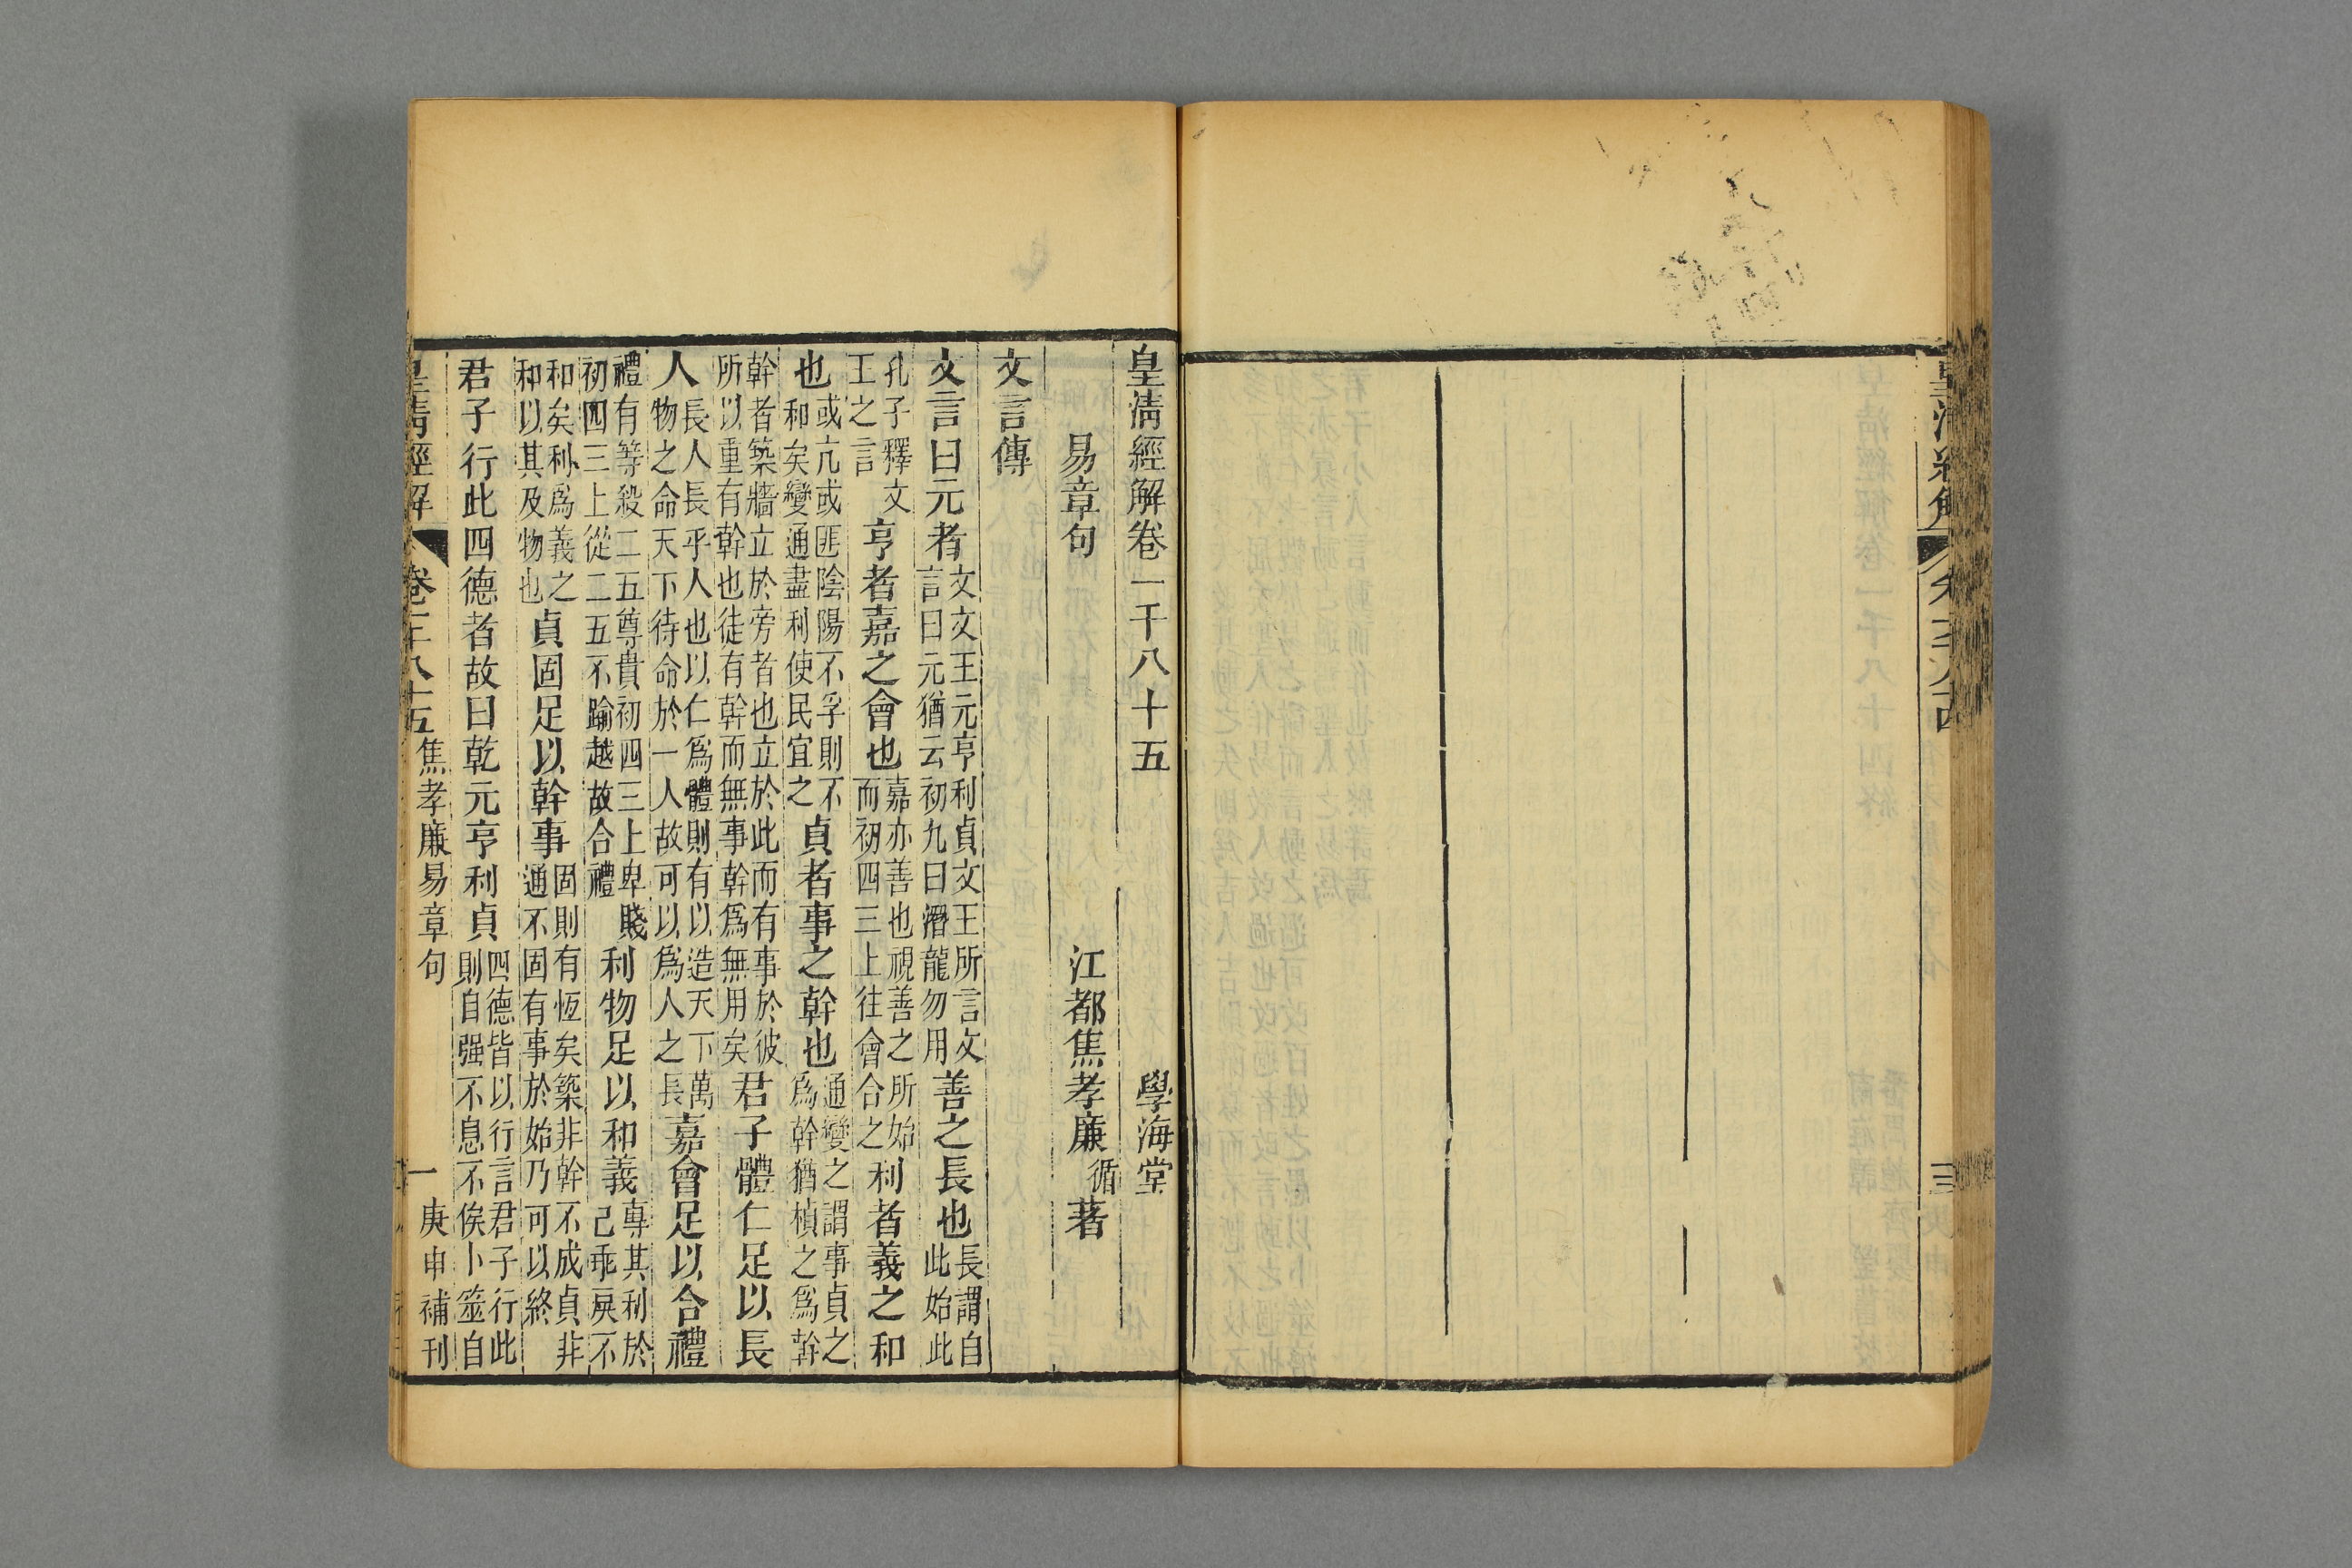 皇清經解　三
皇清經解卷一千八十五　學海堂
易章句　江都焦孝廉循著
文言傳
文言曰元者文文王元亨利貞文王所言文言曰元猶云初九曰潛龍勿用善之長也長謂自此始此
孔子釋文王之言亨者嘉之會也嘉亦善也視善之所始而初四三上往會合之利者義之和
也或亢或匪陰陽不孚則不和矣變通盡利使民宜之貞者事之幹也通變之謂事貞之爲幹猶楨之爲幹
幹者築牆立於旁者也立於此而有事於彼所以重有幹也徒有幹而無事幹爲無用矣君子體仁足以長
人長人長乎人也以仁爲體則有以造天下萬物之命天下待命於一人故可以爲人之長嘉會足以合禮
禮有等殺二五尊貴初四三上卑賤初四三上從二五不踰越故合禮利物足以和義專其利於己乖戾不
和矣利爲義之和以其及物也貞固足以幹事固則有恆矣築非幹不成貞非通不固有事於始乃可以終
君子行此四德者故曰乾元亨利貞四德皆以行言君子行此則自强不息不俟卜筮自
皇清經解　卷一千八十五　焦孝廉易章句　一　庚申補刊